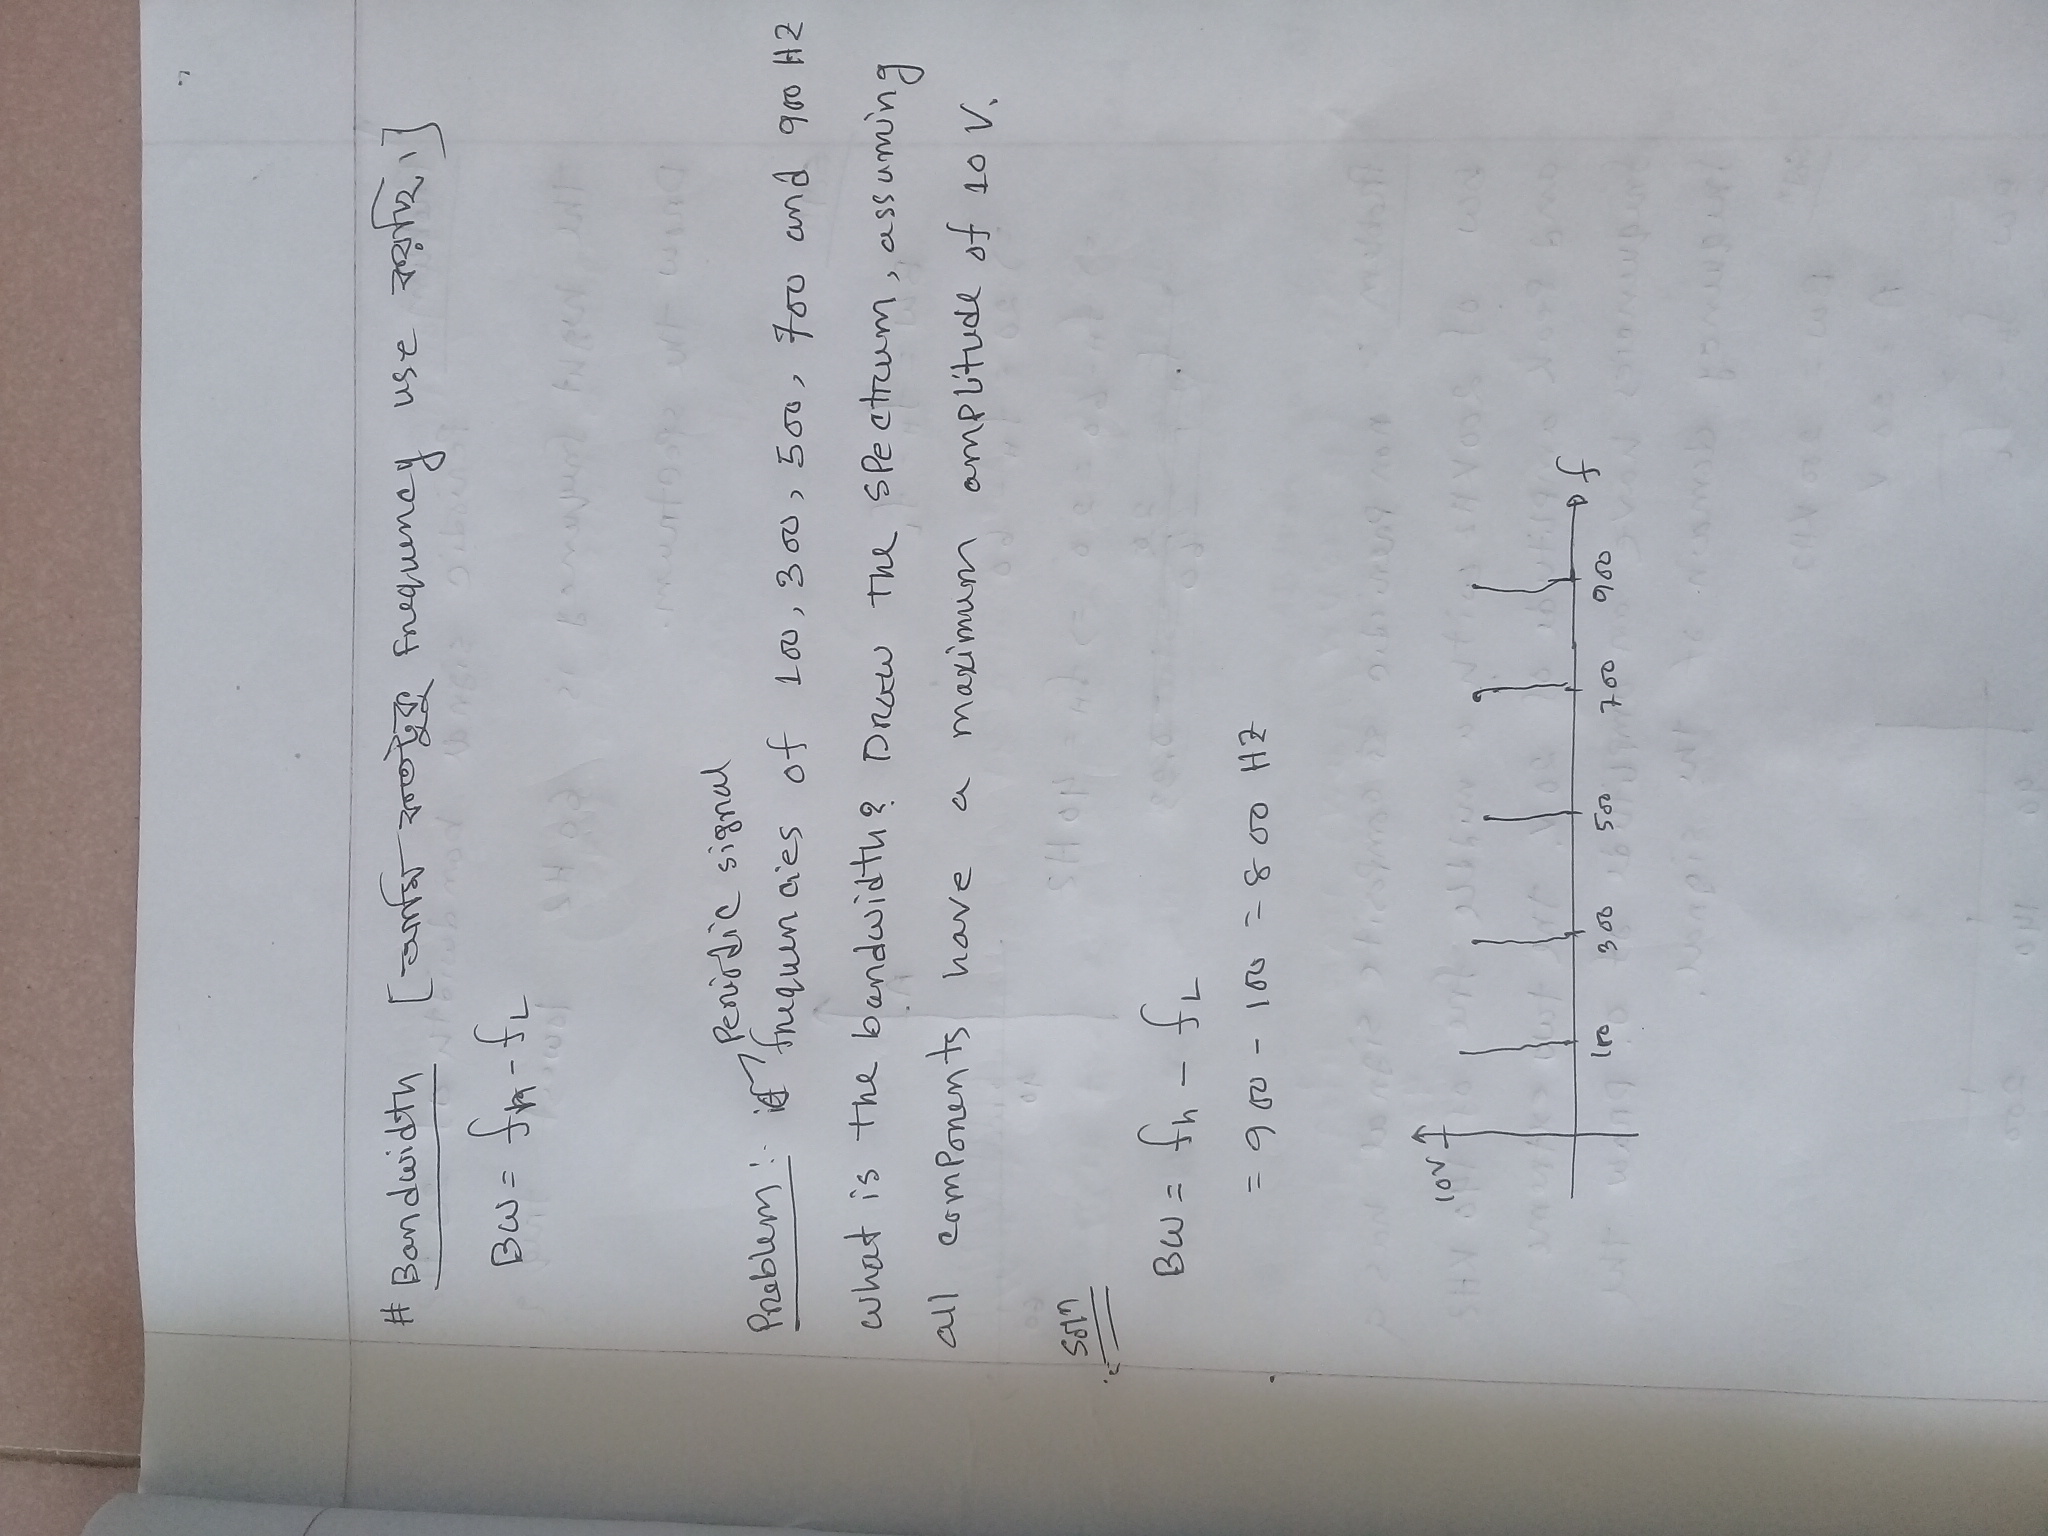 # Bandwidth [আমি কতটুকু frequency use করছি।]
BW = fh - fL
Periodic signal
Problem: if frequencies of 100, 300, 500, 700 and 900 HZ
what is the bandwidth? Draw the spectrum, assuming
all components have a maximum amplitude of 10 V.
Soln
BW = fh - fL
= 900 - 100 = 800 HZ
10V
f
100 300 500 700 900